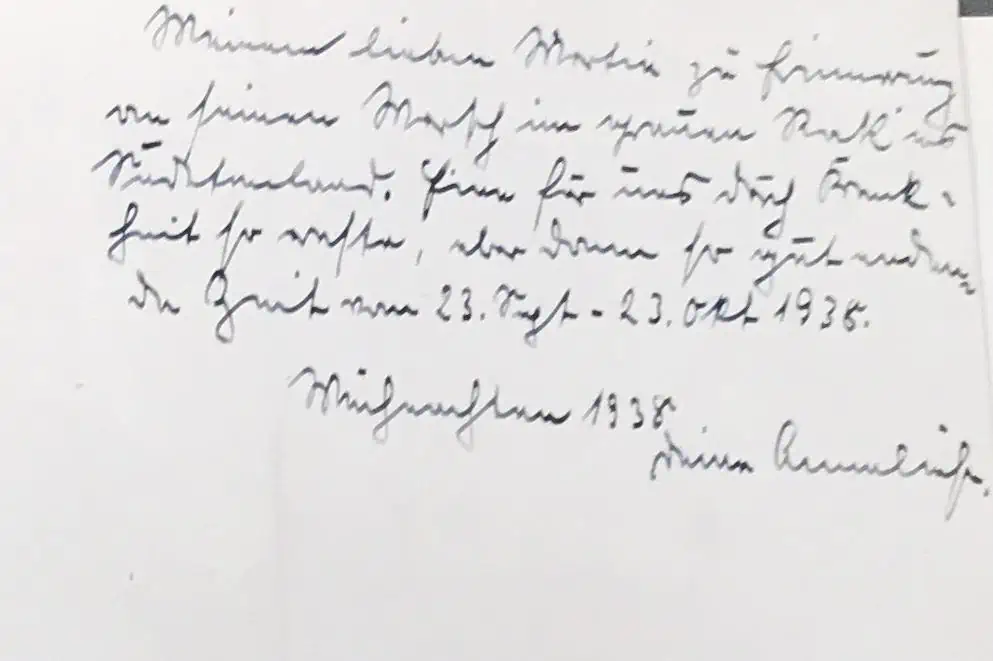 Meinem lieben Martin zu Erinnerung
an seinen Marsch im grauen Rock ins
Sudetenland. Eine für uns durch Krank-
heit so ernste, aber dann so gut enden-
de Zeit vom 23. Sept - 23. Okt 1938.
Weihnachten 1938
Deine Anneliese.